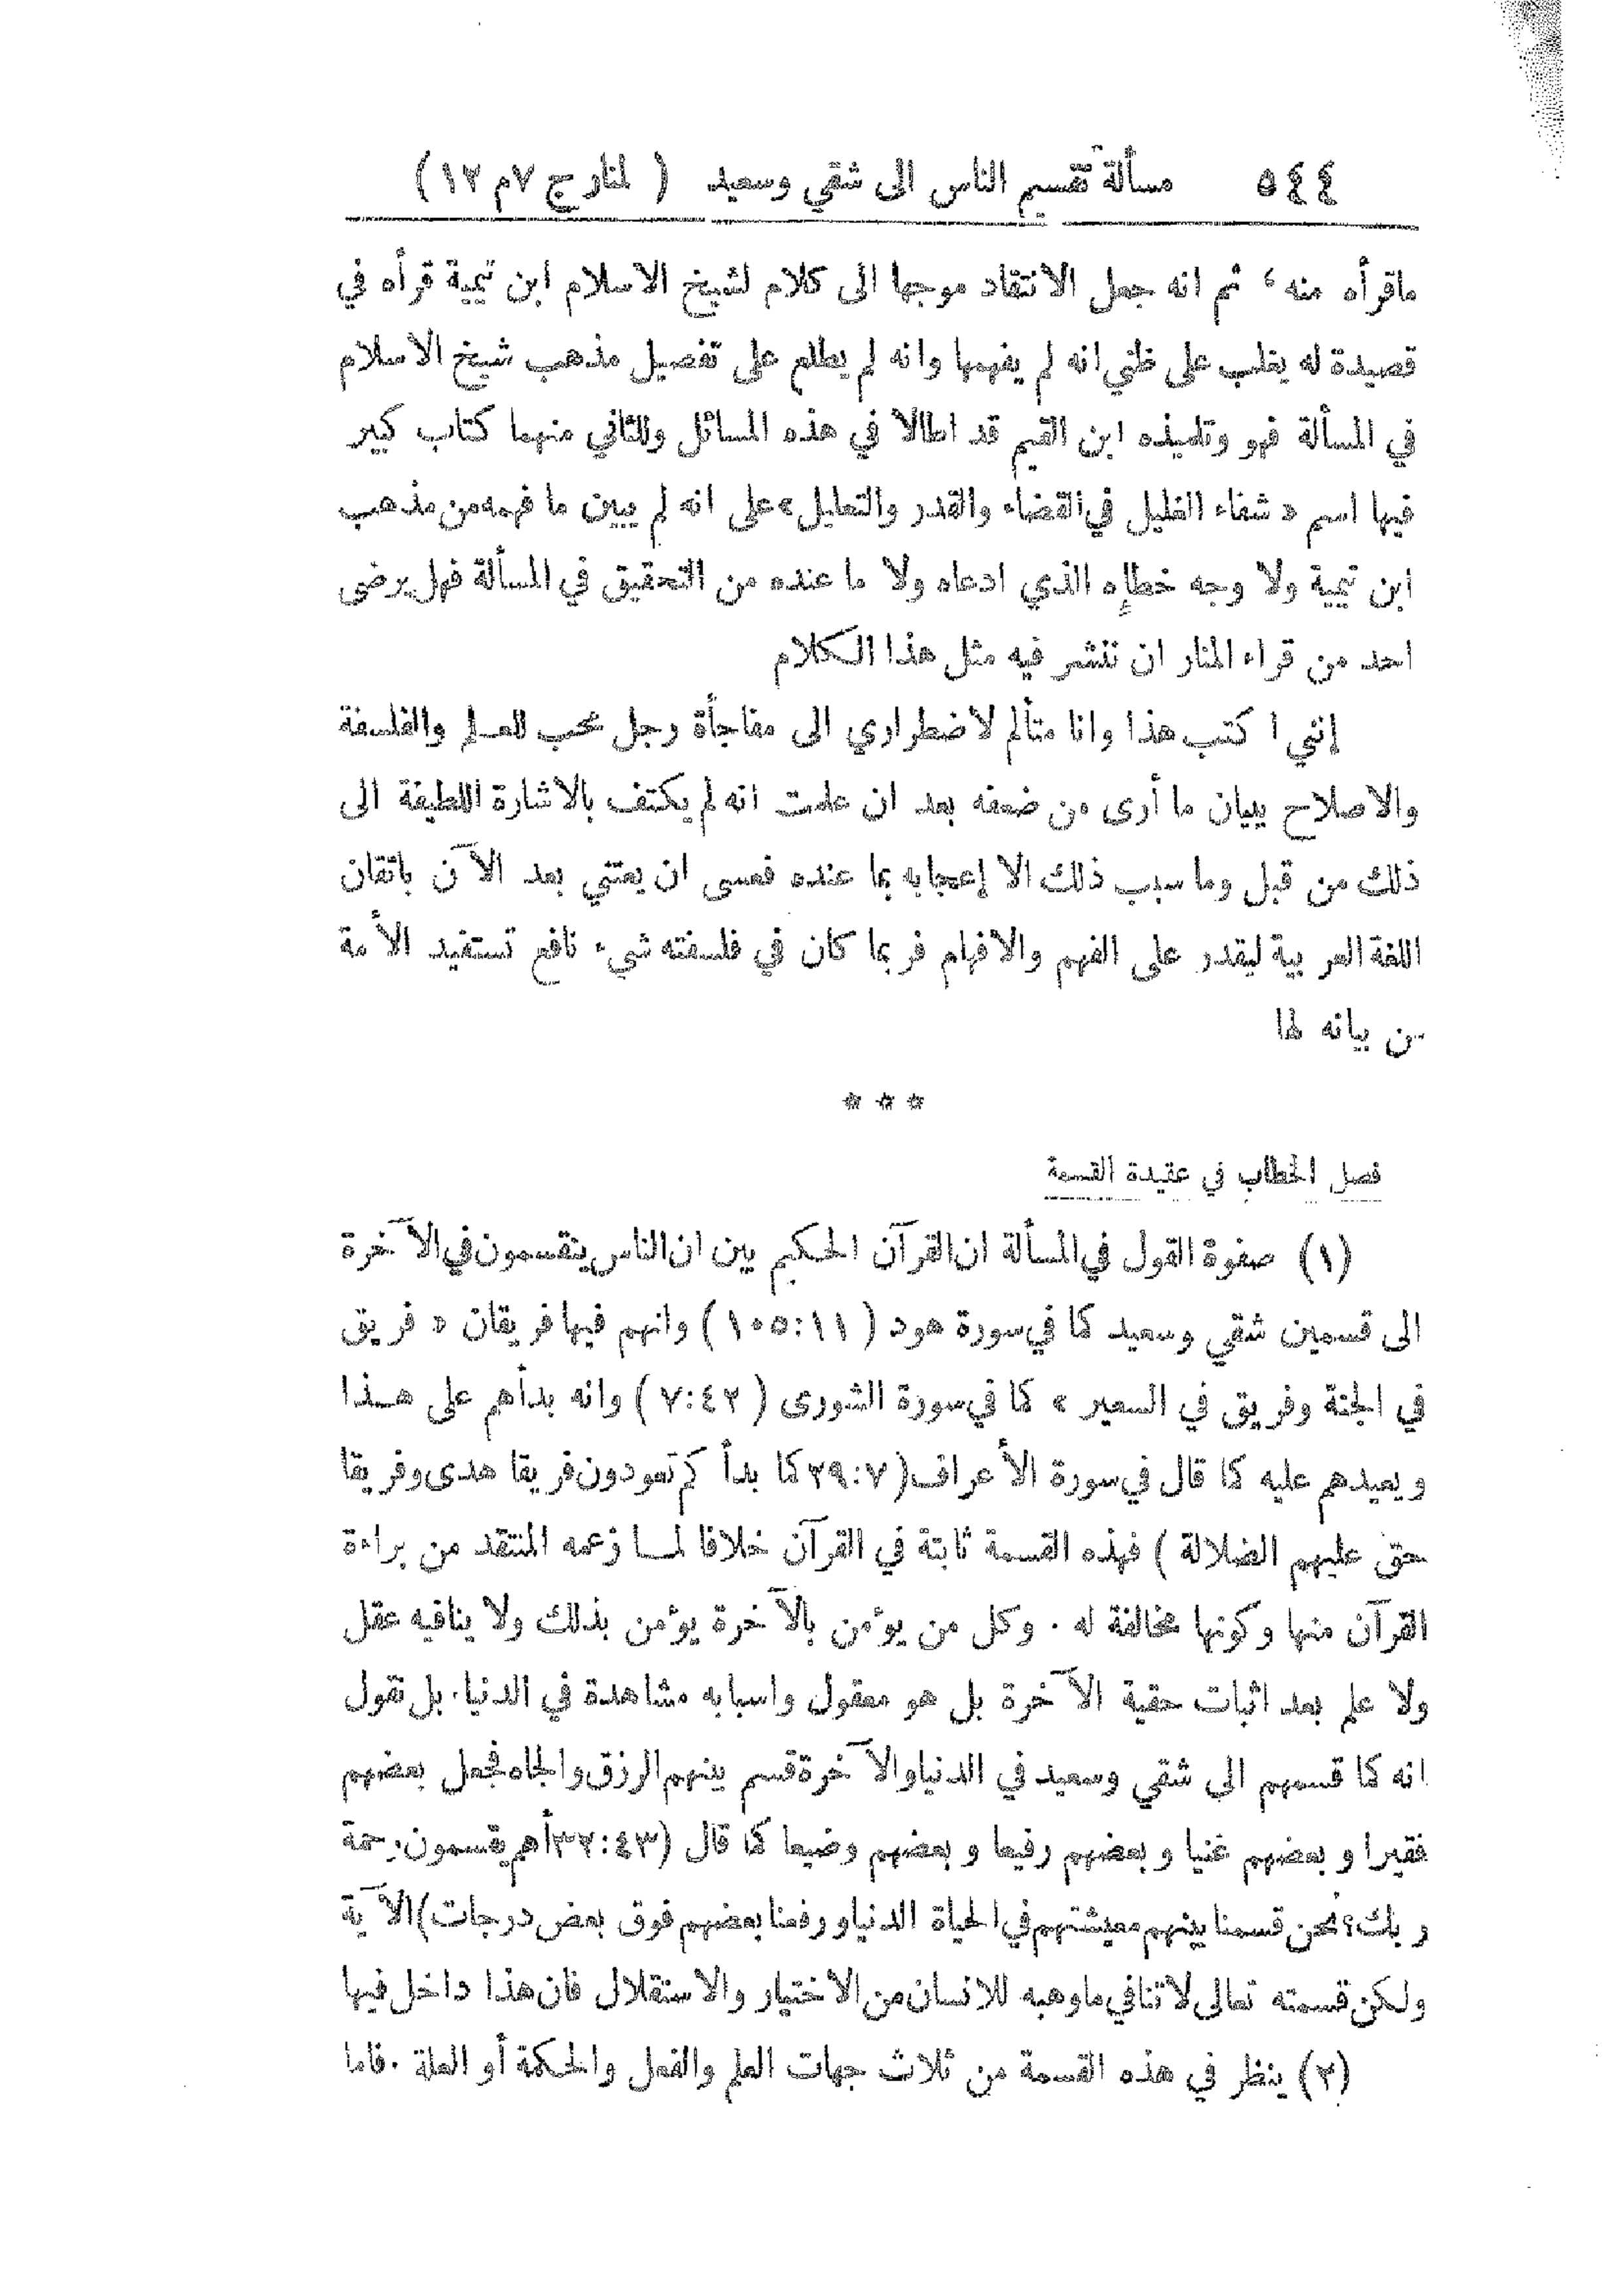 ٥٤٤ مسألة تقسيم الناس الى شقي وسعيد ( المنار ج ٧ م ١٢ )
ماقرأه منه ، ثم انه جعل الانتقاد موجها الى كلام لشيخ الاسلام ابن تيمية قرأه في
قصيدة له يغلب على ظني انه لم يفهمها وانه لم يطلع على تفصيل مذهب شيخ الاسلام
في المسألة فهو وتلميذه ابن القيم قد اطالا في هذه المسائل وللثاني منهما كتاب كبير
فيها اسمه « شفاء الغليل في القضاء والقدر والتعليل » على انه لم يبين ما فهمه من مذهب
ابن تيمية ولا وجه خطإه الذي ادعاه ولا ما عنده من التحقيق في المسألة فهل يرضى
احد من قراء المنار ان ننشر فيه مثل هذا الكلام
إنني اكتب هذا وانا متألم لاضطراري الى مفاجأة رجل محب للعلم والفلسفة
والاصلاح ببيان ما أرى من ضعفه بعد ان علمت انه لم يكتف بالاشارة اللطيفة الى
ذلك من قبل وما سبب ذلك الا إعجابه بما عنده فعسى ان يعتني بعد الآن باتقان
اللغة العربية ليقدر على الفهم والافهام فربما كان في فلسفته شيء نافع تستفيد الأمة
من بيانه لها
* * *
فصل الخطاب في عقيدة القسمة
(١) صفوة القول في المسألة ان القرآن الحكيم بين ان الناس ينقسمون في الآخرة
الى قسمين شقي وسعيد كما في سورة هود ( ١١ :١٠٥ ) وانهم فيها فريقان « فريق
في الجنة وفريق في السعير » كما في سورة الشورى ( ٤٢ :٧ ) وانه بدأهم على هذا
ويعيدهم عليه كما قال في سورة الأعراف (٧ :٢٩ كما بدأكم تعودون فريقا هدى وفريقا
حق عليهم الضلالة ) فهذه القسمة ثابتة في القرآن خلافا لما زعمه المنتقد من براءة
القرآن منها وكونها مخالفة له . وكل من يؤمن بالآخرة يؤمن بذلك ولا ينافيه عقل
ولا علم بعد اثبات حقية الآخرة بل هو معقول واسبابه مشاهدة في الدنيا . بل نقول
انه كما قسمهم الى شقي وسعيد في الدنيا والآخرة قسم بينهم الرزق والجاه فجعل بعضهم
فقيرا وبعضهم غنيا وبعضهم رفيعا وبعضهم وضيعا كما قال (٤٣ :٣٢ أهم يقسمون رحمة
ربك؟ نحن قسمنا بينهم معيشتهم في الحياة الدنيا ورفعنا بعضهم فوق بعض درجات) الآية
ولكن قسمته تعالى لا تنافي ما وهبه للانسان من الاختيار والاستقلال فان هذا داخل فيها
(٢) ينظر في هذه القسمة من ثلاث جهات العلم والفعل والحكمة أو العلة . فاما